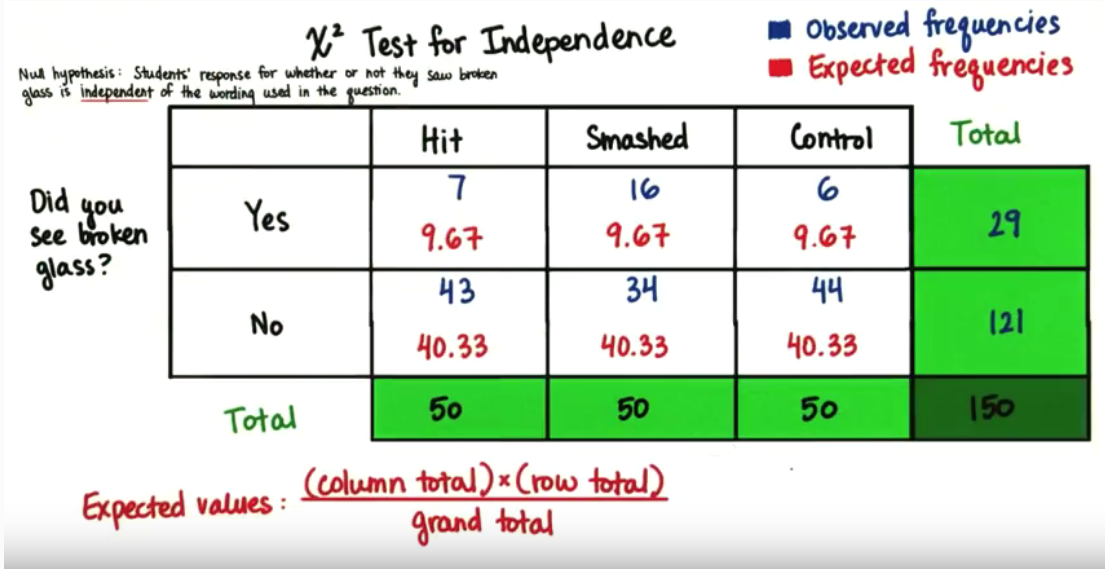 χ² Test for Independence
Observed frequencies
Expected frequencies
Null hypothesis: Students' response for whether or not they saw broken
glass is independent of the wording used in the question.
Hit Smashed Control Total
Did you
see broken
glass?
Yes
7 16 6
9.67 9.67 9.67
29
No
43 34 44
40.33 40.33 40.33
121
Total 50 50 50 150
Expected values: (column total)×(row total)
grand total